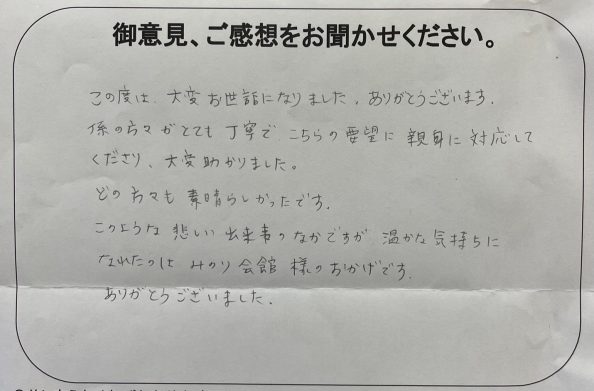 御意見、ご感想をお聞かせください。
この度は、大変お世話になりました。ありがとうございます。
係の方々がとても丁寧でこちらの要望に親身に対応して
くださり、大変助かりました。
どの方々も素晴らしかったです。
このような悲しい出来事のなかですが温かな気持ちに
なれたのはみのり会館様のおかげです。
ありがとうございました。